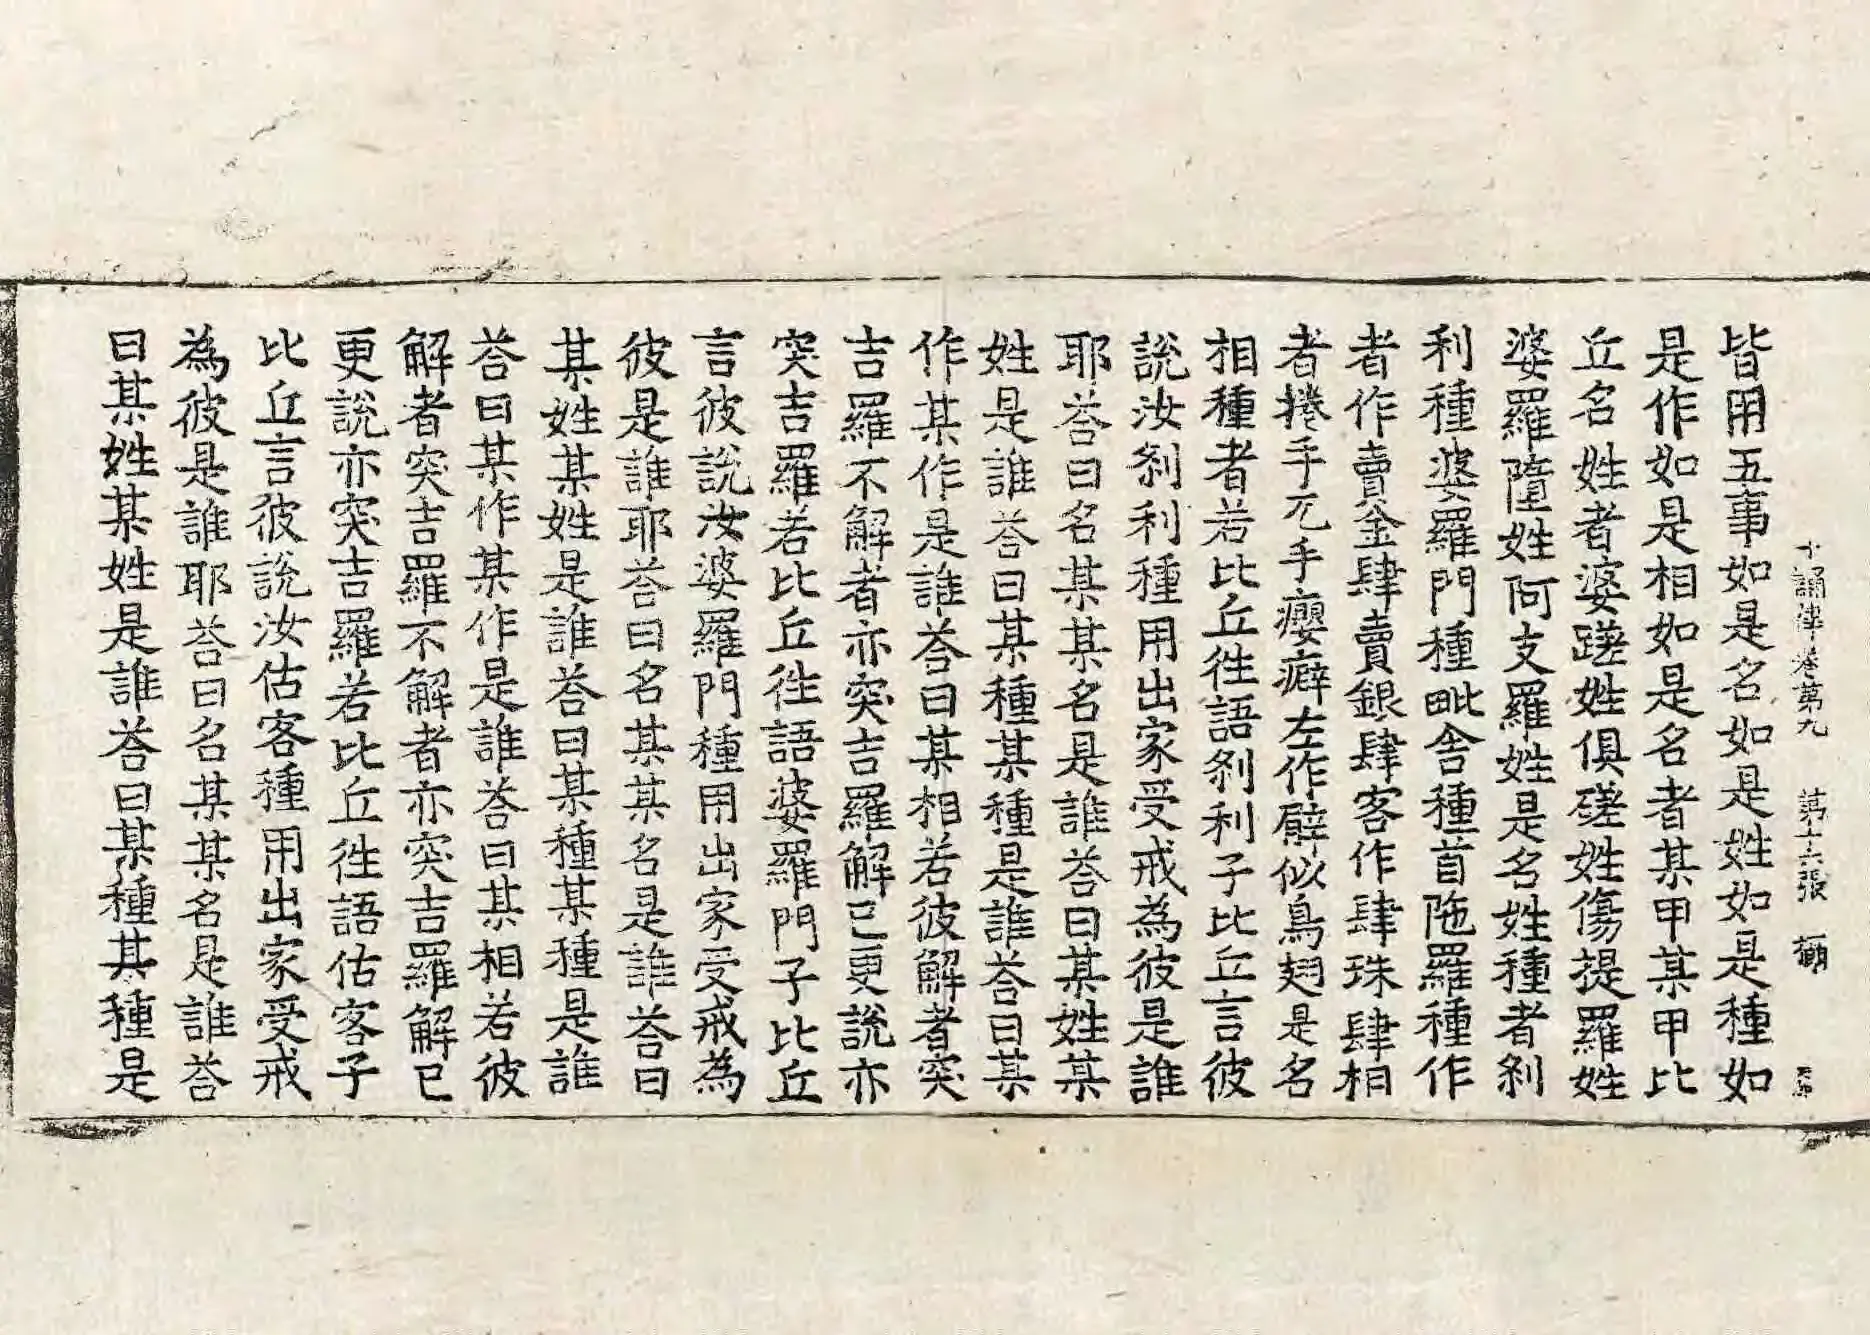 十誦律卷第九 第十六張
皆用五事如是名如是姓如是種如
是作如是相如是名者某甲某甲比
丘名姓者婆蹉姓俱磋姓傷提羅姓
婆羅墮姓阿支羅姓是名姓種者剎
利種婆羅門種毗舍種首陁羅種作
者作賣金肆賣銀肆客作肆珠肆相
者捲手兀手癭癖左作癖似鳥翅是名
相種者若比丘往語剎利子比丘言彼
說汝剎利種用出家受戒為彼是誰
耶荅曰名某某名是誰荅曰某姓某
姓是誰荅曰某種某種是誰荅曰某
作某作是誰荅曰某相若彼解者突
吉羅不解者亦突吉羅解已更說亦
突吉羅若比丘往語婆羅門子比丘
言彼說汝婆羅門種用出家受戒為
彼是誰耶荅曰名某某名是誰荅曰
某姓某姓是誰荅曰某種某種是誰
荅曰某作某作是誰荅曰某相若彼
解者突吉羅不解者亦突吉羅解已
更說亦突吉羅若比丘往語估客子
比丘言彼說汝估客種用出家受戒
為彼是誰耶荅曰名某某名是誰荅
曰某姓某姓是誰荅曰某種某種是